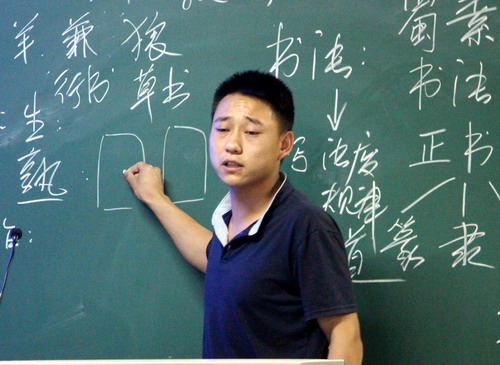 羊 兼 狼
行书 草书
生:
熟
书法:
写 法度
规律
蜀 素
书法
正书
篆 隶